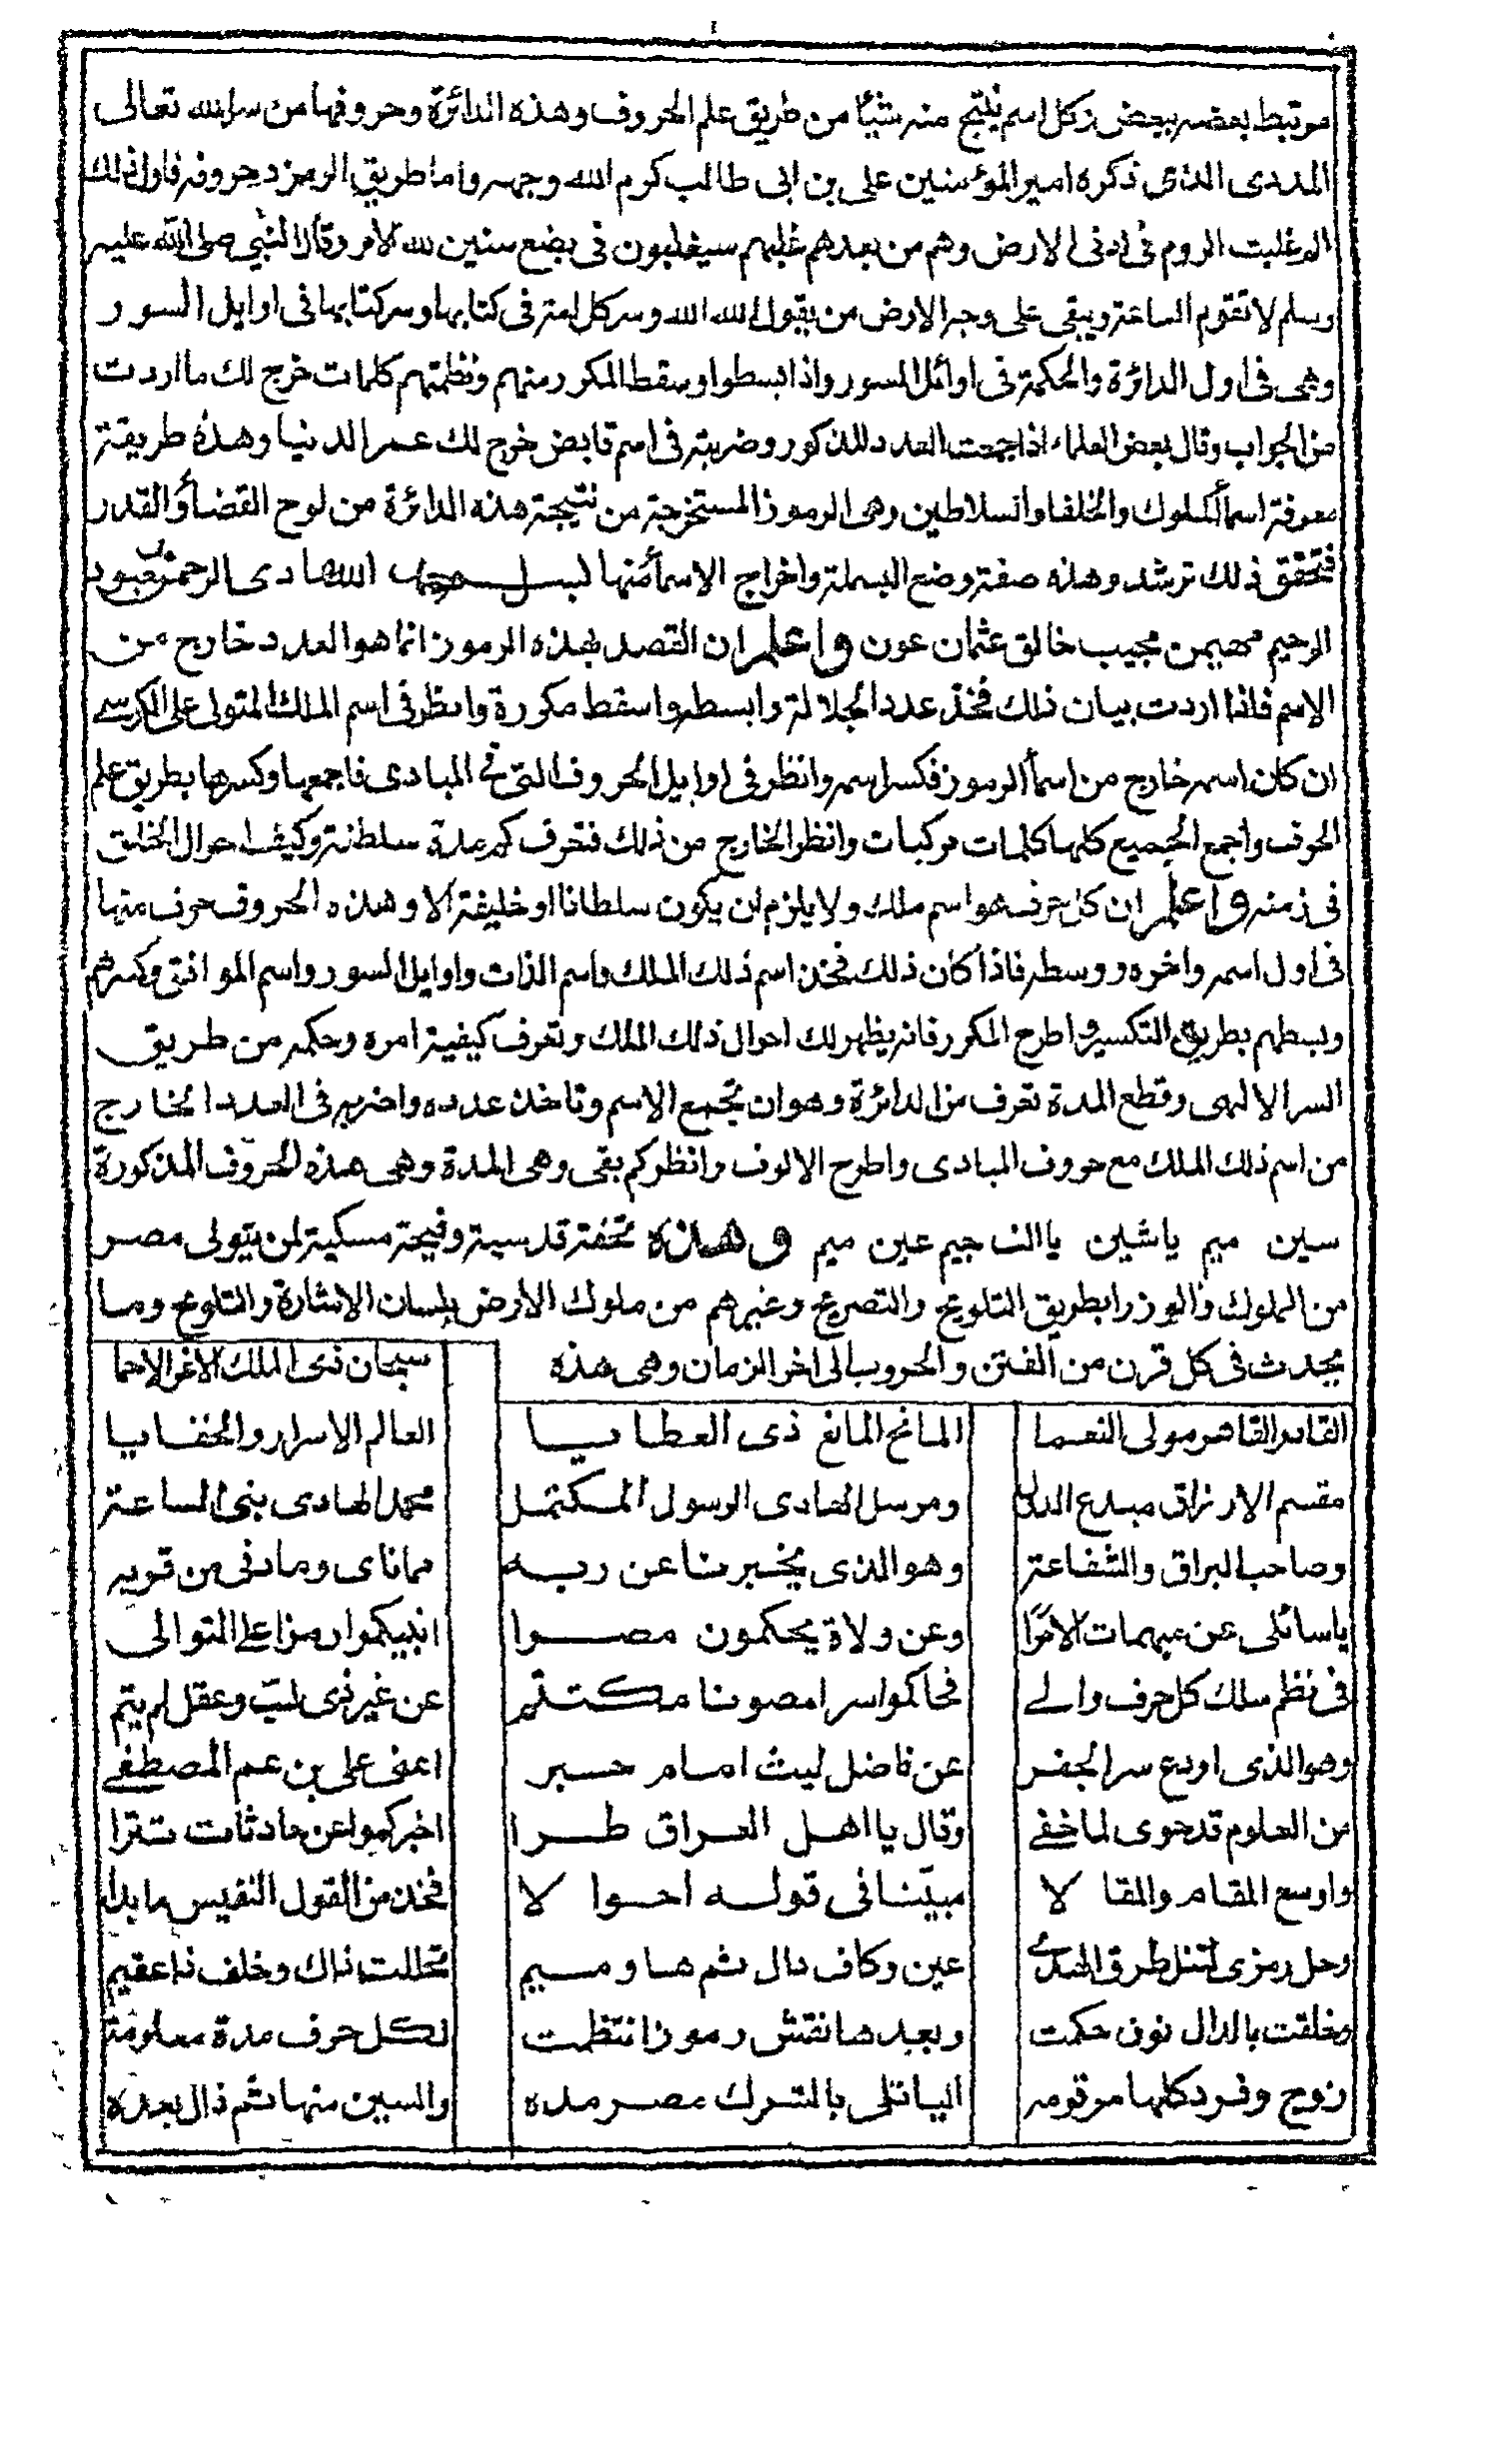 مرتبط بعضه ببعض وكل اسم ينتج منه شيأ من طريق علم الحروف وهذه الدائرة وحروفها من سر الله تعالى
المددى الذى ذكره امير المؤمنين على بن ابى طالب كرم الله وجهه واما طريق الرمز دحروفه فاول ذلك
الم غلبت الروم فى ادنى الارض وهم من بعد هم غلبهم سيغلبون فى بضع سنين لله الامر وقال النبي صلى الله عليه
وسلم لا تقوم الساعة ويبقى على وجه الارض من يقول لله الله وسر كل امة فى كتابها وسر كتابها فى اوايل السور
وهى فى اول الدائرة والحكمة فى اوائل السور واذا بسطوا وسقط المكرر منهم ونظمتهم كلمات خرج لك ما اردت
من الجواب وقال بعض العلماء اذا جمعت العدد للذكور وضربته فى اسم قابض خرج لك عمر الدنيا وهذه طريقة
معرفة اسما الملوك والخلفا والسلاطين وهى الرموز المستخرجة من نتيجة هذه الدائرة من لوح القضا والقدر
فتحقق ذلك ترشد وهذه صفة وضع البسملة واخراج الاسما منها الله هادى الرحمن معبود
الرحيم مهيمن مجيب خالق عثمان عون واعلم ان القصد بهذه الرموز انما هو العدد خارج من
الاسم فاذا اردت بيان ذلك فخذ عدد الجلالة وابسطه واسقط مكررة وانظر فى اسم الملك المتولى على الكرسے
ان كان اسمه خارج من اسما الرموز فكسر اسمه وانظر فى اوايل الحروف التى فى المبادى فاجمعها وكسرها بطريق علم
الحرف واجمع الجميع كلها كلمات مركبات وانظر الخارج من ذلك فتعرف كم مدة سلطنة وكيف احوال الخلق
فى زمنه واعلم ان كل حرف هو اسم ملك ولا يلزم ان يكون سلطانا او خليفة الا وهذه الحروف حرف منها
فى اول اسمه واخره ووسطه فاذا كان ذلك فخذ اسم ذلك الملك واسم الذات واوايل السور واسم الموافق وكسرهم
وبسطهم بطريق التكسير واطرح المكرر فانه يظهر لك احوال ذلك الملك وتعرف كيفية امره وحكمه من طريق
السر الالهى وقطع المدة تعرف من الدائرة وهو ان تجمع الاسم وتاخذ عدده واضربه فى العدد الخارج
من اسم ذلك الملك مع حروف المبادى واطرح الالوف وانظر كم بقى وهى المدة وهى هذه الحروف المذكورة
سين ميم يا شين يا الف جيم عين ميم وهذه تحفة قدسية وفيحة مسكية لمن يتولى مصر
من الملوك والوزرا بطريق التلويح والتصريح وغيرهم من ملوك الارض بلسان الاشارة والتلويح وما
يحدث فى كل قرن من الفتن والحروب الى اخر الزمان وهى هذه سبحان ذى الملك الاغر الاحما
القادر القاهر مولى النعما المانح المانع ذى العطايا العالم الاسرار والخفايا
مقسم الارزاق مبدع ومرسل الهادى الرسول المكتمل محمد الهادى بنى الساعة
وصاحب البراق والشفاعة وهو الذى يخبرنا عن ربه مانا اى وما دنى من قربه
يا سائلى عن مبهمات الامرا وعن ولاة يحكمون مصرا انبيكموا رمزا على التوالى
فى نظم سلك كل حرف والے فحاكموا سرا مصونا مكتتم عن غير ذى لب وعقل لم يتم
وهو الذى اودع سر الجفر عن فاضل ليث امام حبر اعنى على بن عم المصطفے
من العلوم قد حوى لما خفے وقال يا اهل العراق طرا اخبركموا عن حادثات تترا
واوسع المقام والمقا لا مبيّنا فى قوله احوا لا فخذ من القول النفيس ما بدا
وحل رمزى لتنل طرق الهدے عين وكاف دال ثم ها وميم تحللت ذاك وخلف ذا عقيم
وخلقت بالدال نون حكمت وبعدها نقش رموز انتظمت لكل حرف مدة معلومة
زوج وفرد كلها مرقومه بالترك مصر مده والسين منها ثم ذال بعده